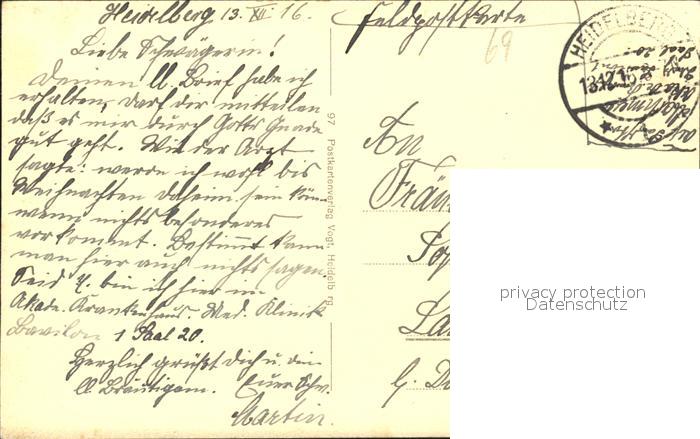 Heidelberg 13. XII 16.
Feldpostkarte
69
Liebe Schwägerin!
Deinen lb. Brief habe ich
erhalten, darf dir mitteilen
daß es mir durch Gotts Gnade
gut geht. Wie der Arzt
sagte: werde ich wohl bis
Weihnachten daheim sein kön-
wenn nichts besonderes
vorkommt. Bestimmt kann
man hier auch nichts sagen.
Seid 4. bin ich hier im
Akade. Krankenhaus. Med. Klinik
Bavilon 1 Saal 20.
Herzlich grüßt dich u. dein
lb. Bräutigam. Euer Schw.
Martin.
97 Postkartenverlag Vogt, Heidelb rg.
HEIDELBERG
13.12.16
Saal 20
An
Fräu
Sop
La
privacy protection
Datenschutz